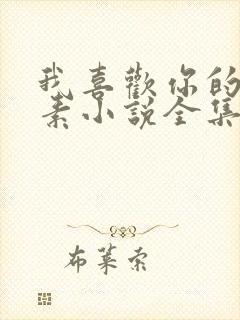 我喜歡你的
素小說全集
布萊索